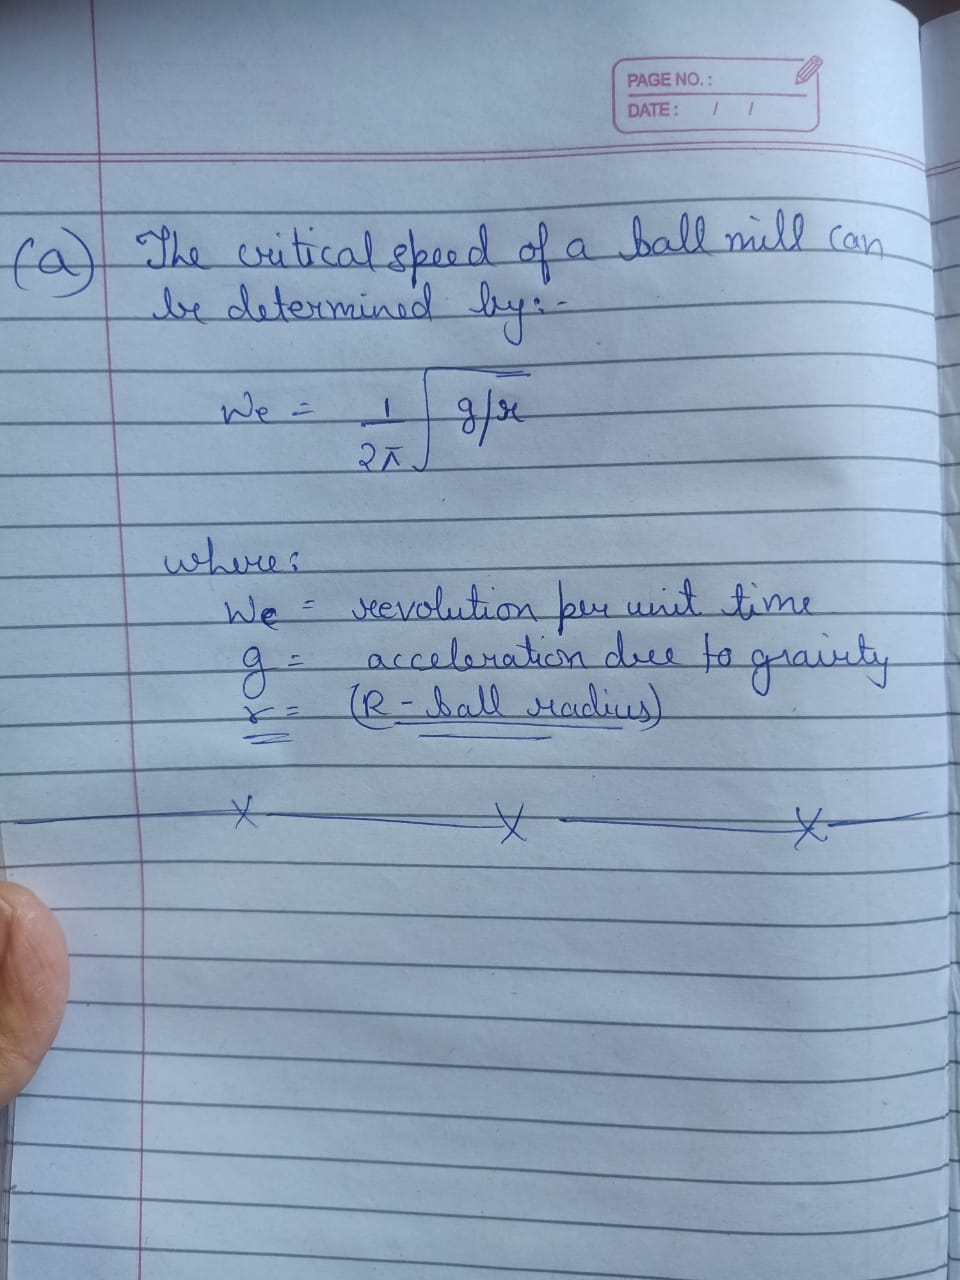 PAGE NO. :
DATE : / /
(a) The critical speed of a ball mill can
be determined by:-
We = 1/2π √g/r
where:
We = revolution per unit time
g = acceleration due to gravity
r = (R - ball radius)